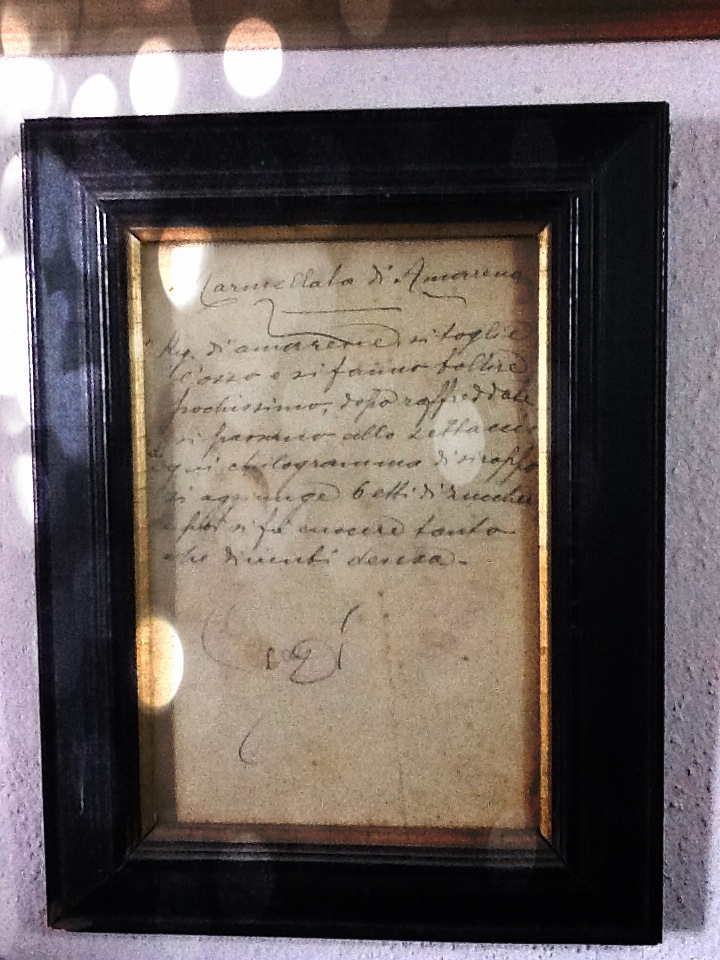 Marmellata di Amarena
Kg. di amarene, si toglie
l'osso e si fanno bollire
pochissimo, dopo raffreddate
si passano allo settaccio
ogni chilogramma di siroppo
si aggiunge 6 etti di zucchero
e poi si fa cuocere tanto
che diventi densa.